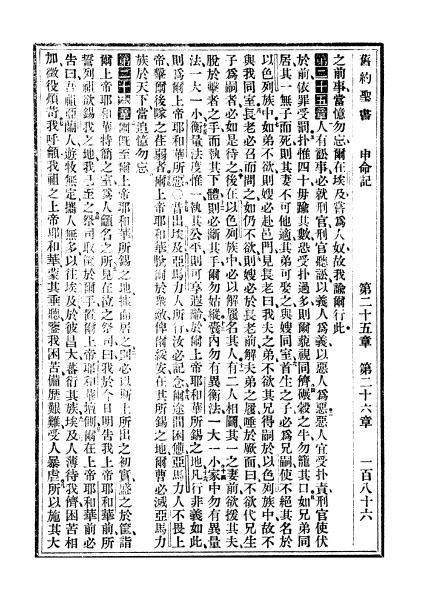 舊約聖書 申命記 第二十五章 第二十六章 一百八十六
之前事當憶勿忘爾在埃及嘗爲人奴故我諭爾行此
第二十五章人有訟事必就刑官刑官聽訟以義人爲義以惡人爲惡惡人宜受扑責刑官使伏
於前依罪受罰扑惟四十毋踰其數恐受扑過多則爾藐視同儕碾穀之牛勿籠其口如兄弟同
居其一無子而死則其妻不可他適其弟可娶之與嫂同室首生之子必爲兄嗣使不絕其名於
以色列族中如弟不欲則嫂必赴邑門見長老曰我夫之弟不欲其兄得嗣於以色列族中故不
與我同室長老必召而問之如仍不欲則嫂必於長老前解夫弟之屨唾於厥面曰不欲代兄生
子爲嗣者必如是待之後在以色列族中必以解屨名其人有二人相鬭其一之妻前欲援其夫
脫於擊者之手而執其下體則必斷其手爾勿姑縱囊內勿有異衡法一大一小家中勿有異量
法一大一小衡量法度惟一執其公平則可享遐齡於爾上帝耶和華所錫之地凡行非義如此
則爲爾上帝耶和華所惡○昔出埃及亞馬力人所行汝必記念爾途間困憊亞馬力人不畏上
帝擊爾後隊之荏弱者爾上帝耶和華爾於衆敵俾爾綏安在其所錫之地爾曹必滅亞馬力
族於天下當追憶勿忘
第二十六章爾旣至爾上帝耶和華所錫之地據而居之則必以斯土所出之初實盛之於筐詣
爾上帝耶和華特簡之室爲人籲名之所見在之祭司曰我於今日明告我上帝耶和華前所
誓列祖欲錫我之地我已至之祭司取筐於爾手置爾上帝耶和華壇側爾在上帝耶和華前必
告曰吾祖亞蘭人遊牧無定攜人無多以往埃及於彼昌大蕃衍其族埃及人薄待我儕困苦相
加徵役煩苛我呼籲我祖之上帝耶和華蒙其垂聽鑒我困苦備歷艱難受人暴虐所以施其大